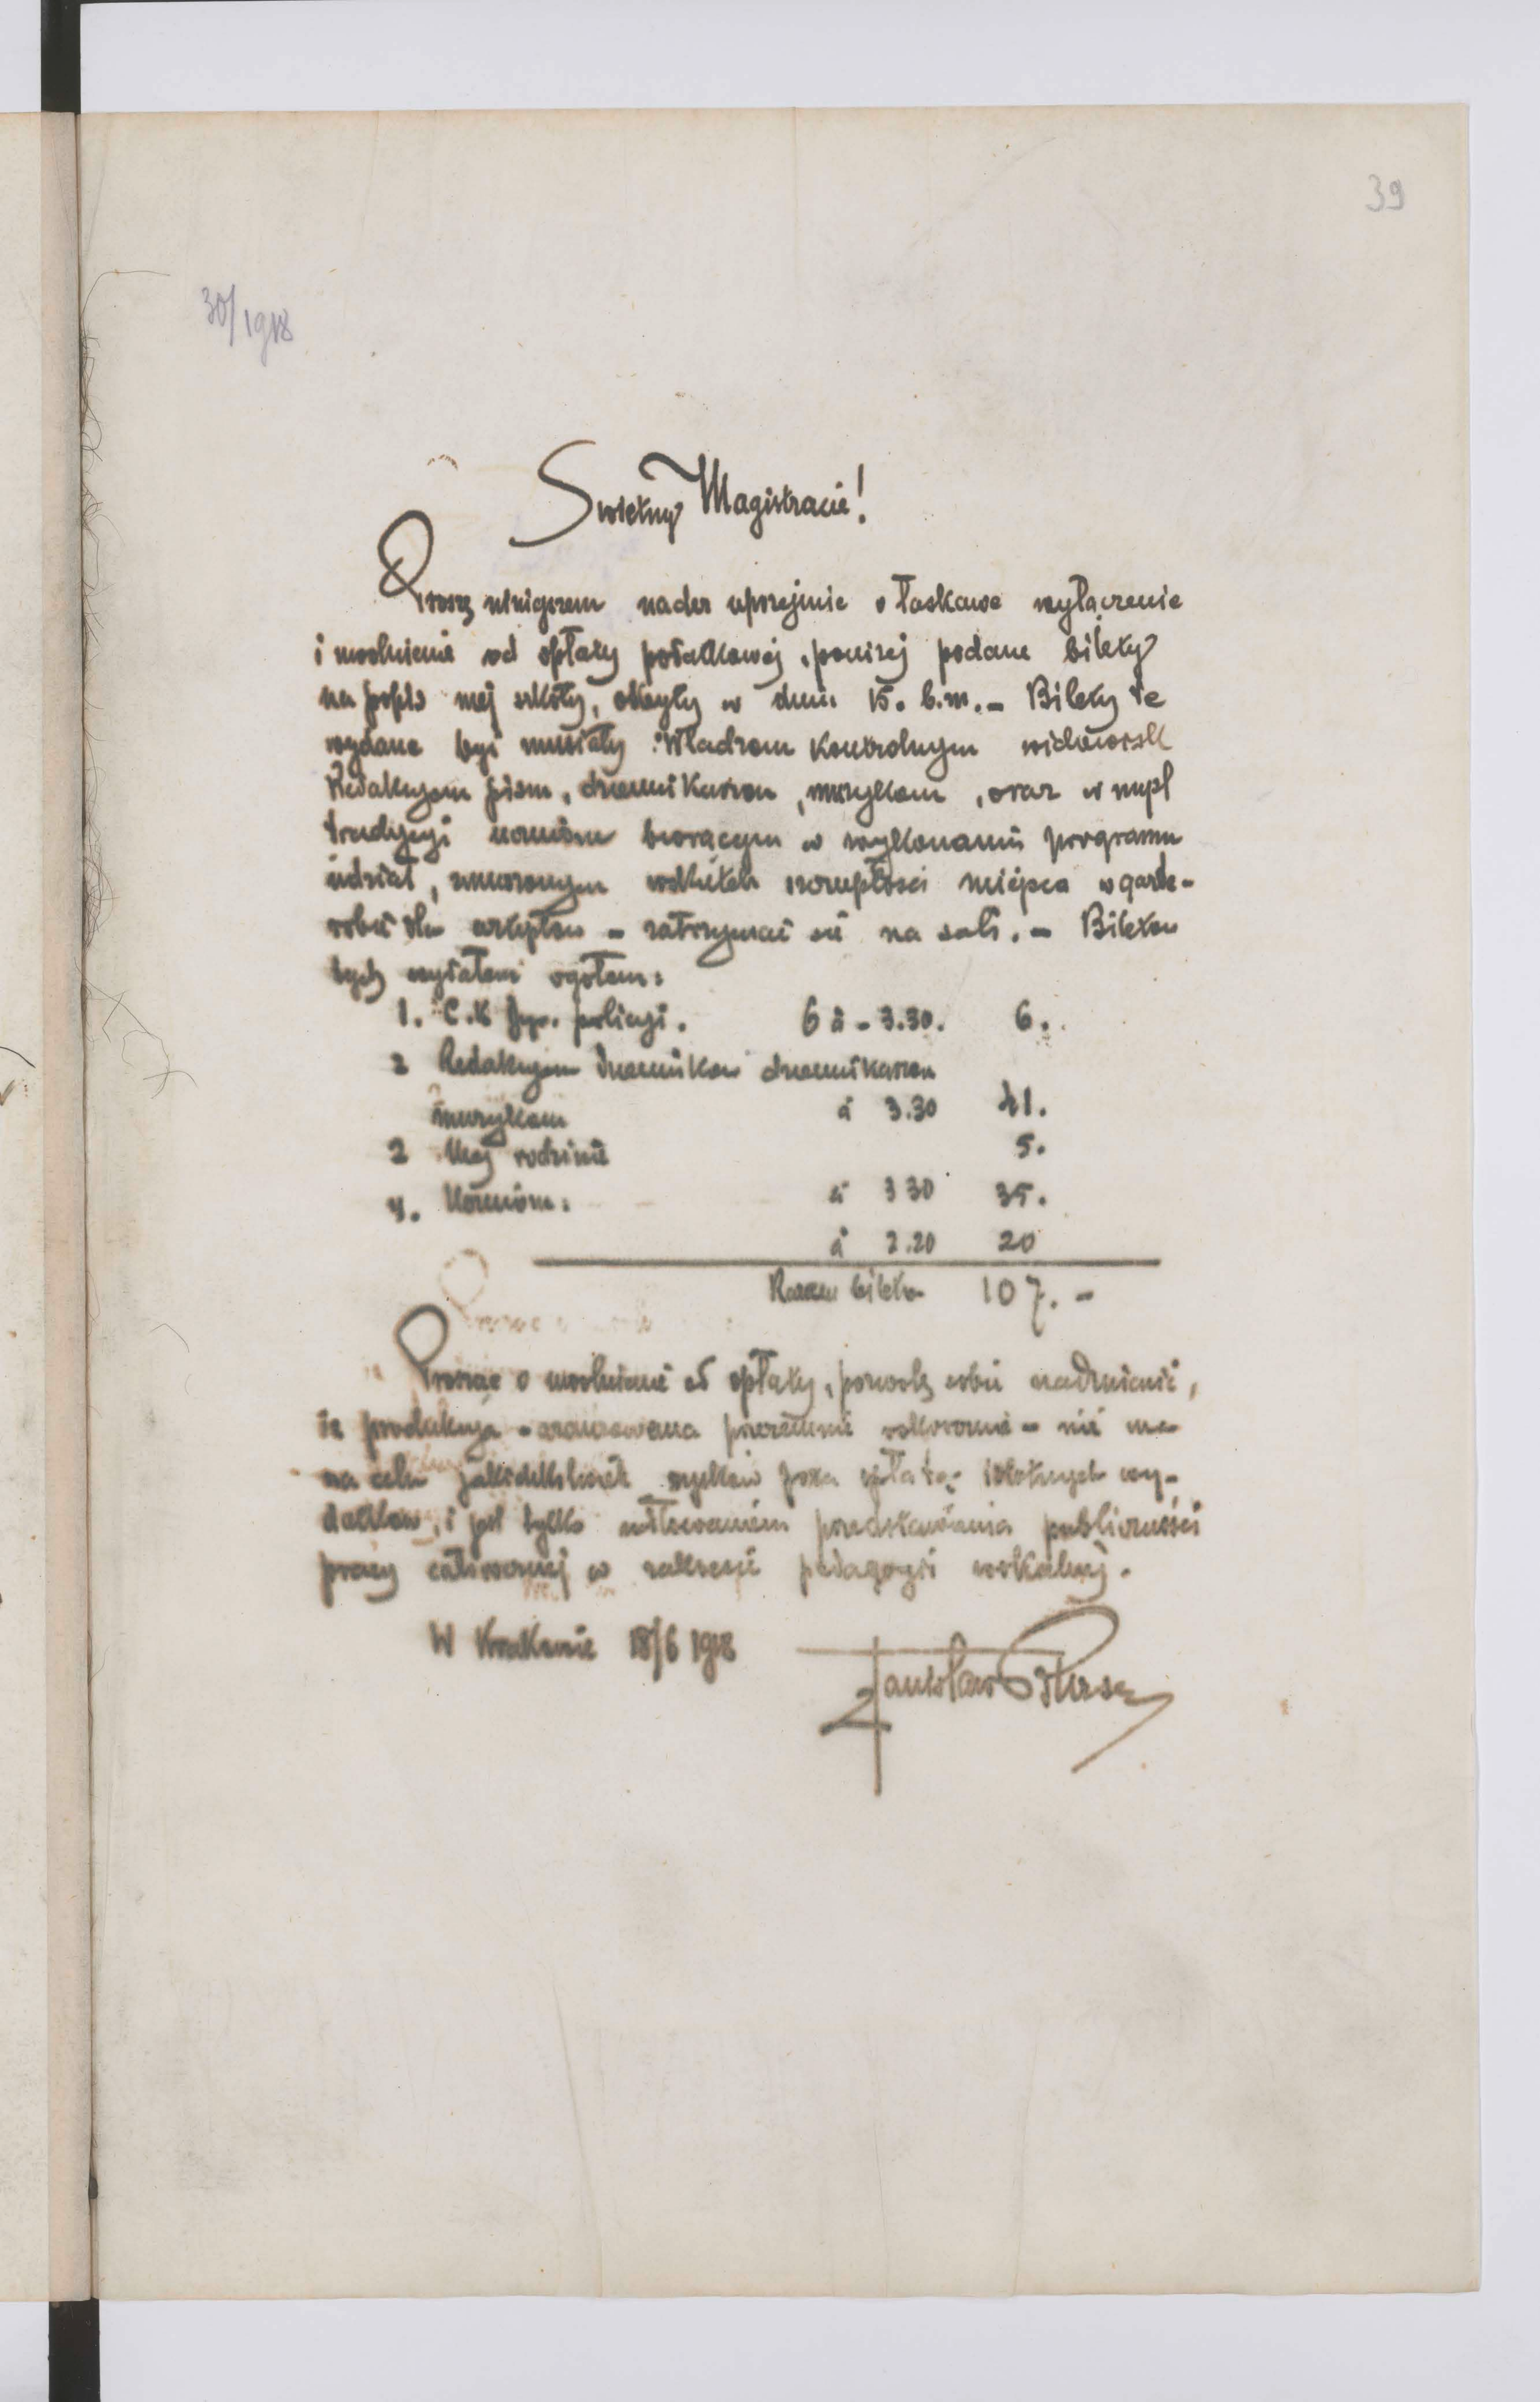 39
30/1918
Swietny Magistracie!
Proszę niniejszem nader uprzejmie o łaskawe wyłaczenie
i uwolnienie od opłaty podatkowej, poniżej podane bilety
na popis mej szkoły, odbyty w dniu 15. b.m. - Bilety te
wydane być musiały: Władzom Kontrolnym widowisk
Redakcyom pism, dziennikarzom, muzykom, oraz w mysl
tradycyi uczniom biorącym w wykonaniu programu
udział, zmuszonym wskutek szczupłości miejsca w garde-
robie dla - zatrzymać się na sali. - Biletow
tych wydałem ogółem:
1. C.K Dyr. policyi. 6 à - 3.30. 6.
2 Redakcyom dziennikow dziennikarzom
muzykom à 3.30 41.
3 Mej rodzinie 5.
4. Uczniom: à 3 30 35.
à 2.20 20
Razem biletow 107. -
Prosząc o uwolnienie od opłaty, pozwolę sobie nadmienić,
że produkcya - przezemnie - nie ma
na celu jakichkolwiek zysków poza istotnych wy-
datkow, i jest tylko usiłowaniem przedstawienia publiczności
pracy w zakresie pedagogii wokalnej.
W Krakowie 18/6 1918
Stanisław Bursa